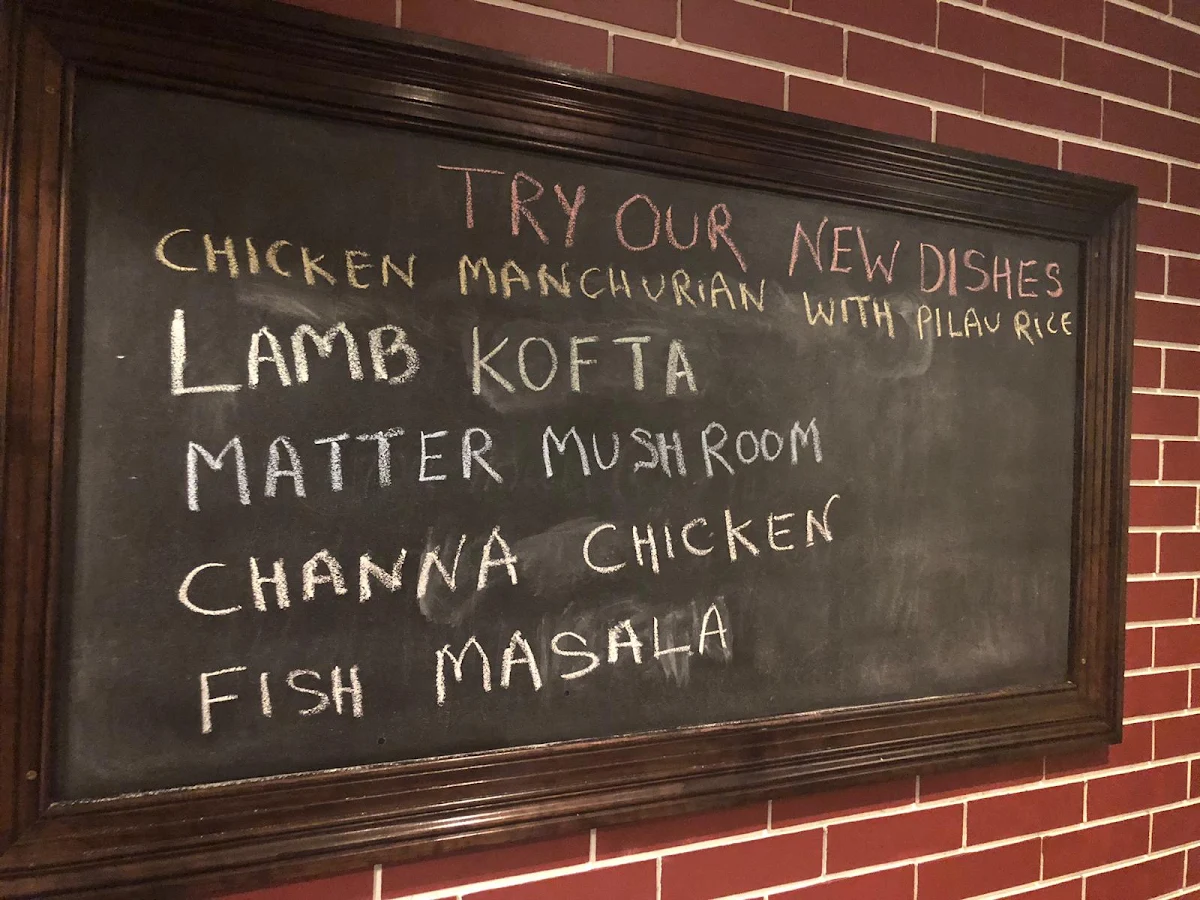 TRY OUR NEW DISHES
CHICKEN MANCHURIAN WITH PILAU RICE
LAMB KOFTA
MATTER MUSHROOM
CHANNA CHICKEN
FISH MASALA